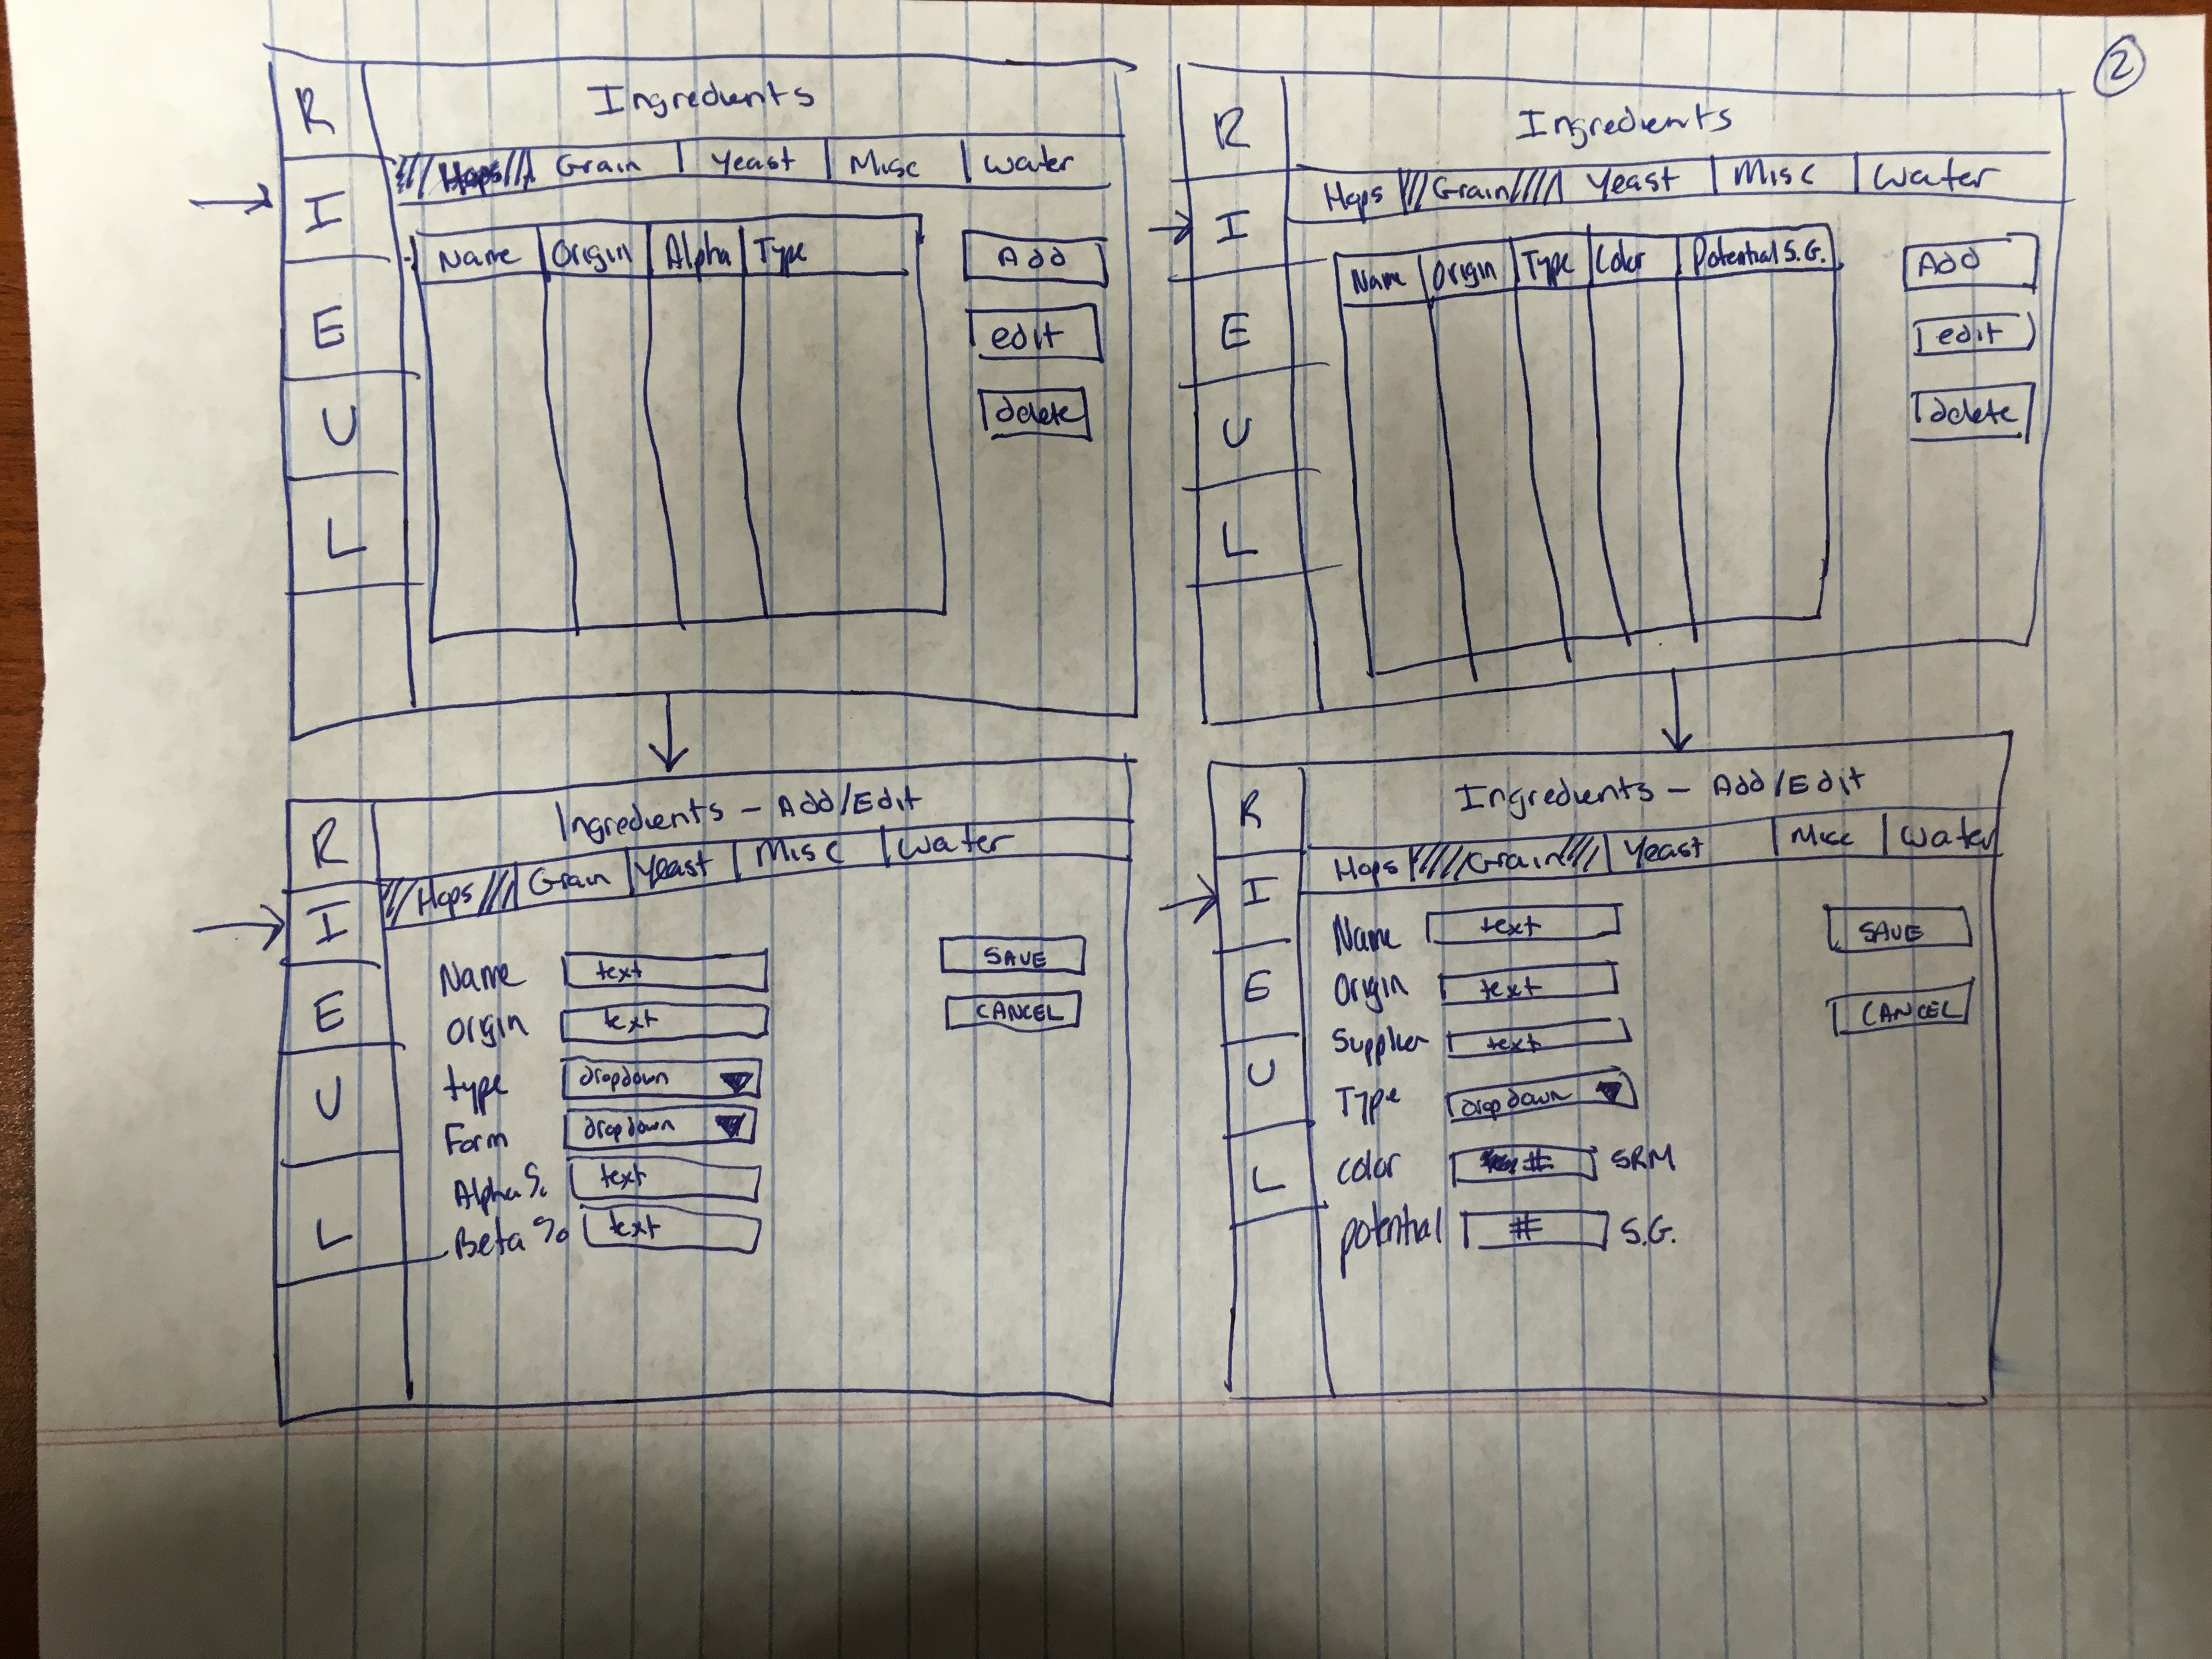 2
Ingredients
R
I
E
U
L
Hops Grain Yeast Misc Water
Name Origin Alpha Type
Add
edit
delete
Ingredients
R
I
E
U
L
Hops Grain Yeast Misc Water
Name Origin Type Color Potential S.G.
Add
edit
delete
Ingredients - Add/Edit
R
I
E
U
L
Hops Grain Yeast Misc Water
Name text
Origin text
type dropdown
Form dropdown
Alpha % text
Beta % text
SAVE
CANCEL
Ingredients - Add/Edit
R
I
E
U
L
Hops Grain Yeast Misc Water
Name text
Origin text
Supplier text
Type dropdown
color # SRM
potential # S.G.
SAVE
CANCEL